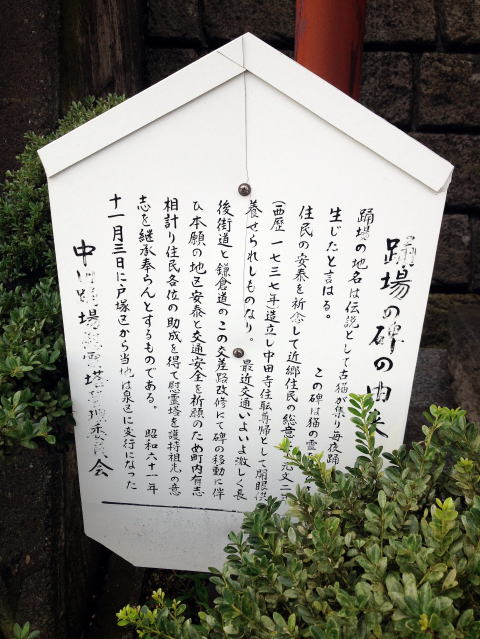 踊場の碑の由来
踊場の地名は伝説として古猫が集り毎夜踊
生じたと言はる。 この碑は猫の霊
住民の安泰を祈念して近郷住民の総意 元文二
(西歴 一七三七年造立し中田寺住職尊帰として開眼供
養せられしものなり。 最近交通いよいよ激しく長
後街道と鎌倉道のこの交差路改修にて碑の移動に伴
ひ本願の地区安泰と交通安全を祈願のため町内有志
相計り住民各位の助成を得て慰霊塔を護持祖先の意
志を継承奉らんとするものである。 昭和六十一年
十一月三日に戸塚区から当地は泉区に支行になった
中田踊場慰霊塔護持委員会